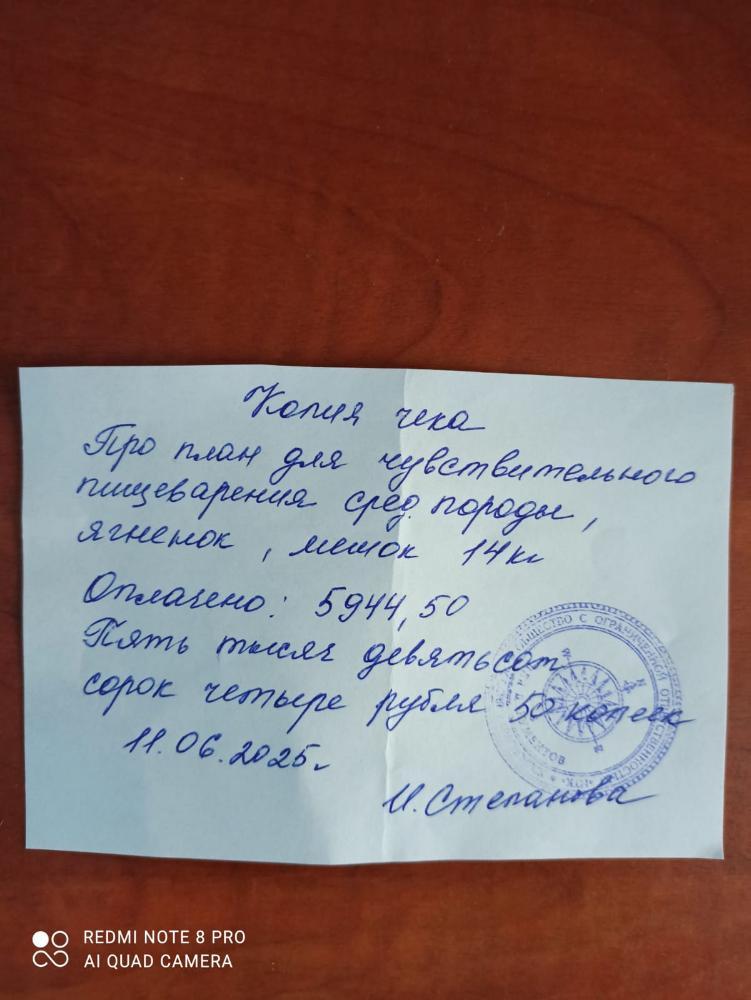 Копия чека
Про план для чувствительного
пищеварения сред. породы,
ягненок, мешок 14кг
Оплачено: 5944,50
Пять тысяч девятьсот
сорок четыре рубля 50 копеек
11.06.2025г
И. Степанова
ОБЩЕСТВО С ОГРАНИЧЕННОЙ ОТВЕТСТВЕННОСТЬЮ
ДОКУМЕНТОВ
REDMI NOTE 8 PRO
AI QUAD CAMERA